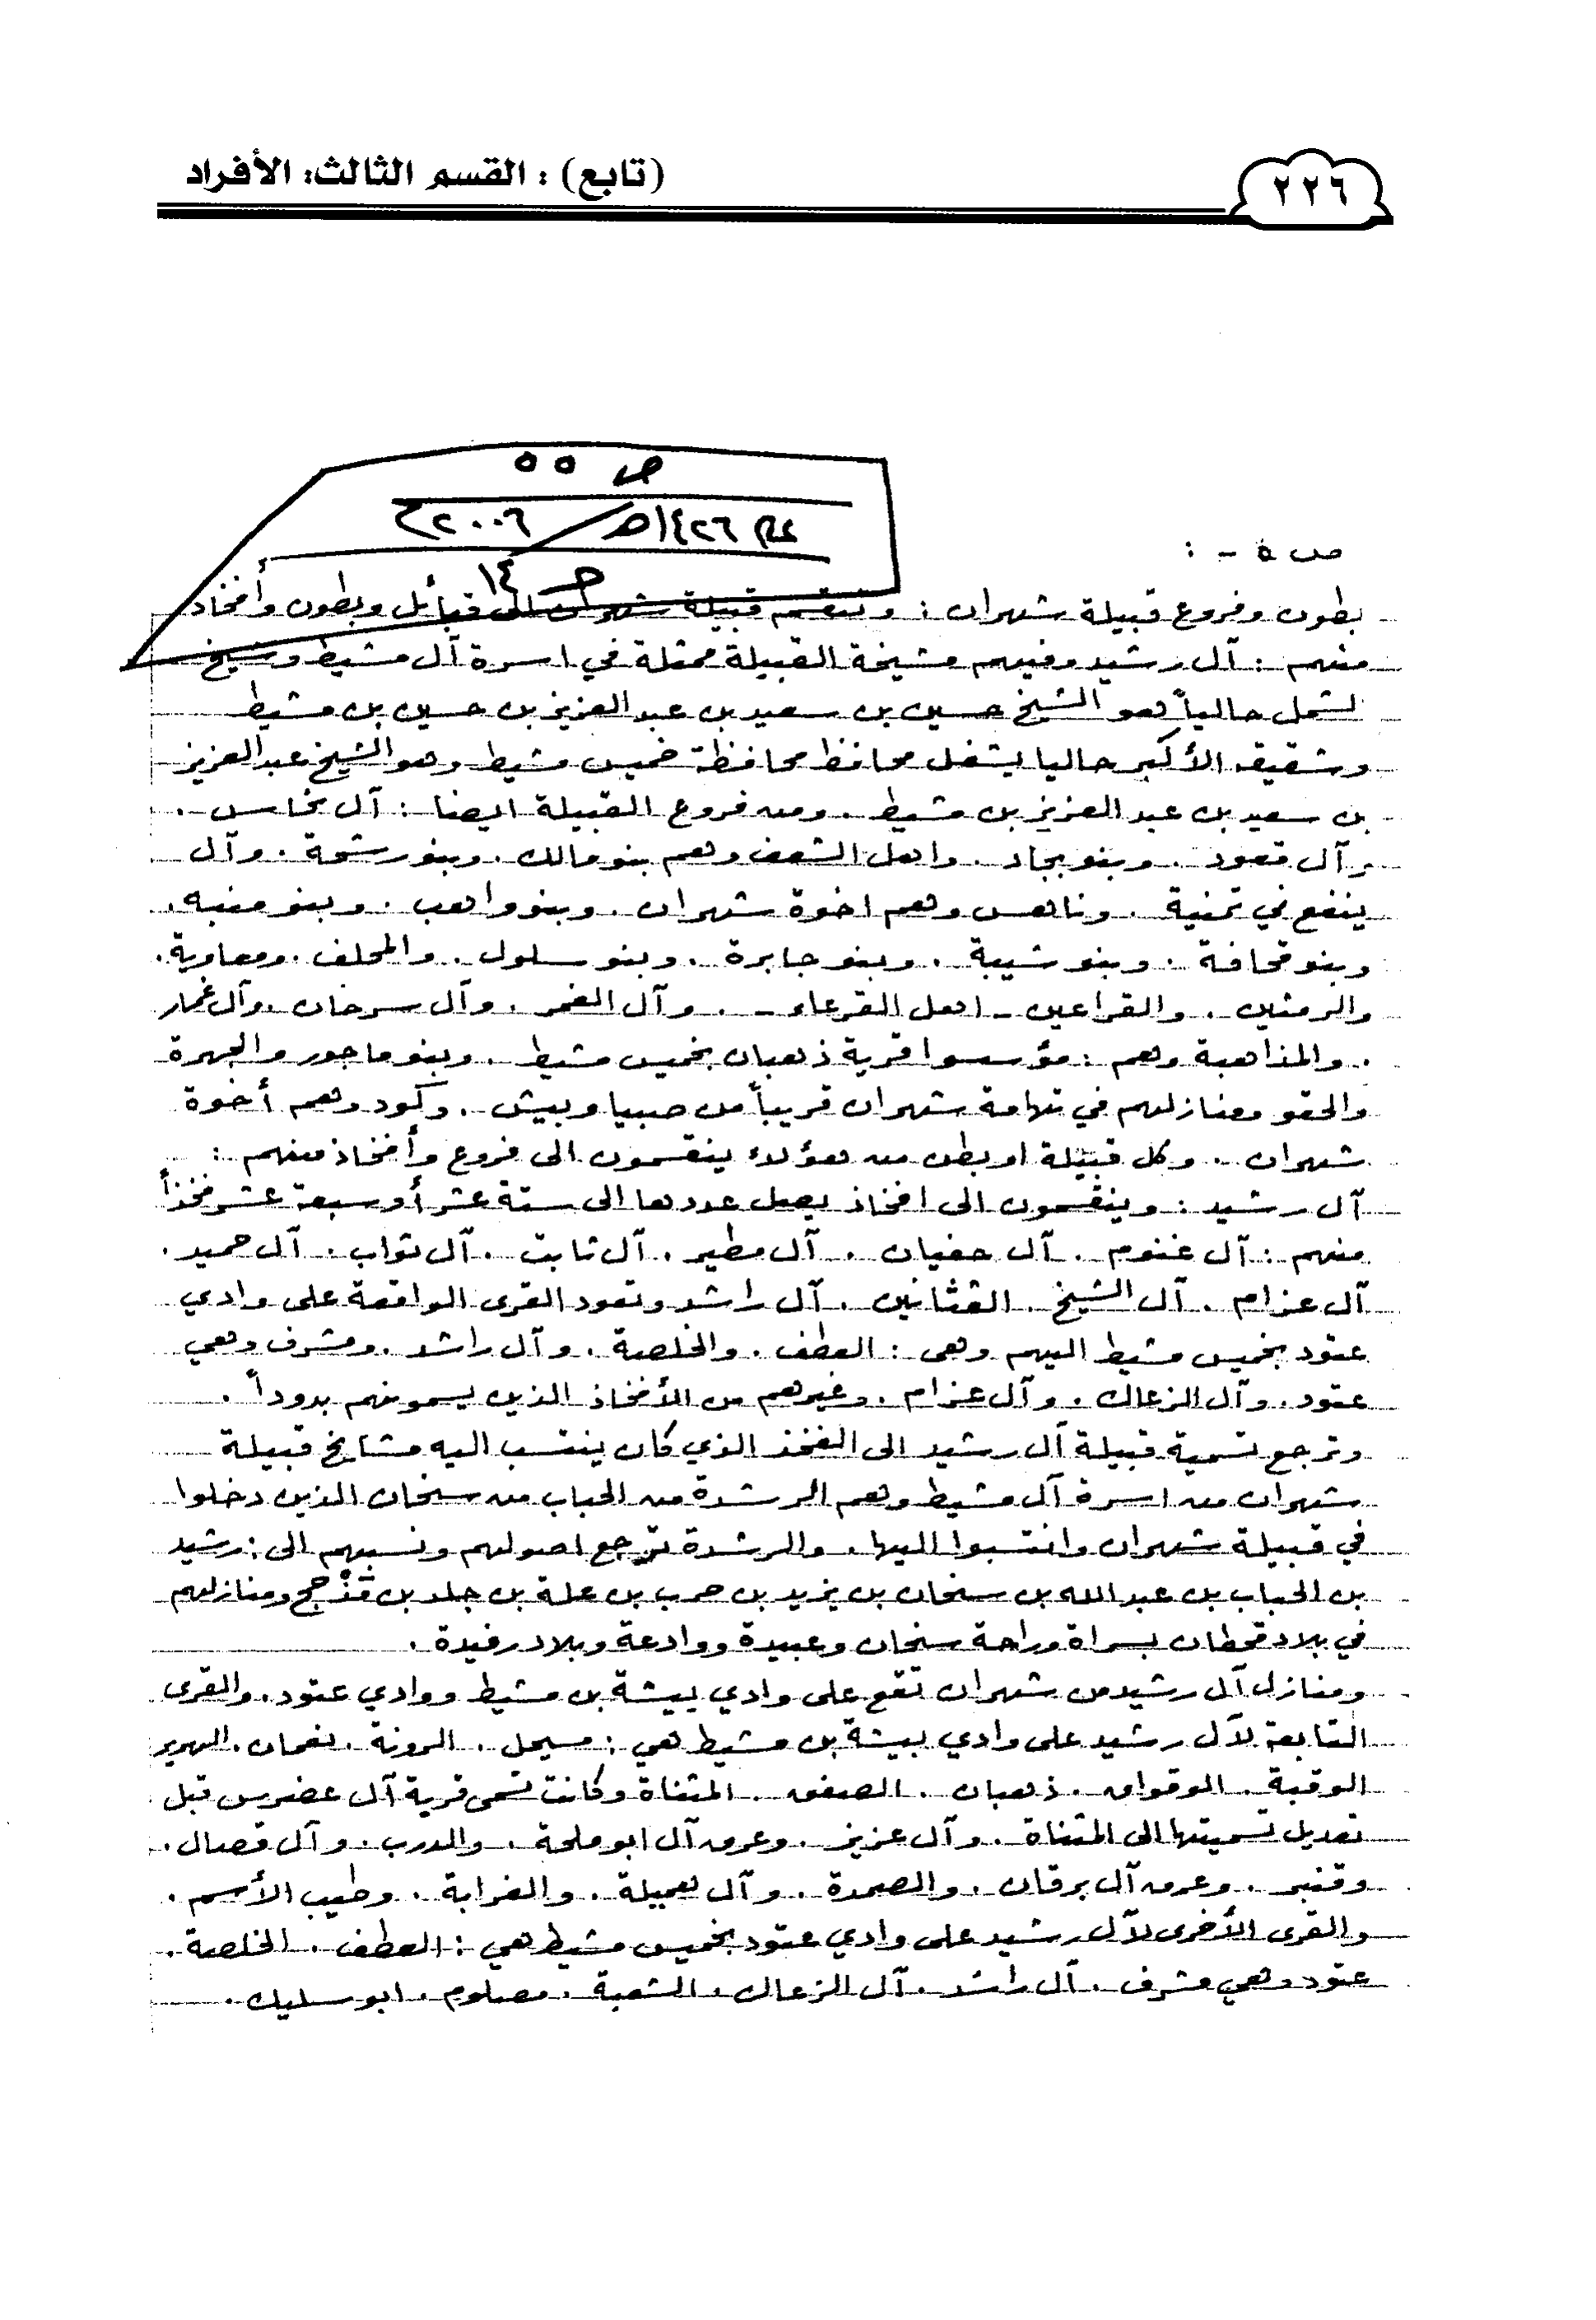 (تابع) : القسم الثالث: الأفراد
٢٢٦
ص ٥٥
١٤٢٦هـ / ٢٠٠٦م
حـ ١٤
ص ٥ - :
بطون وفروع قبيلة شهران : وتنقسم قبيلة شهران الى قبائل وبطون وأفخاذ
منهم : آل رشيد وفيهم مشيخة القبيلة ممثلة في اسرة آل مشيط وشيخ
لشمل حالياً هو الشيخ حسين بن سعيد بن عبد العزيز بن حسين بن مشيط
وشقيقه الأكبر حاليا يشغل محافظ محافظة خميس مشيط وهو الشيخ عبد العزيز
بن سعيد بن عبد العزيز بن مشيط . ومن فروع القبيلة ايضا : آل نحاس .
وآل قعود . وبنو بجاد . واهل الشعف وهم بنو مالك . وبنو رشحة . وآل
ينفع في تمنية . وناهس وهم اخوة شهران . وبنو واهب . وبنو منبه .
وبنو قحافة . وبنو شيبة . وبنو جابرة . وبنو سلول . والمحلف . ومعاوية .
والرمثين . والقراعين - اهل القرعاء - . وآل الغمر . وآل سرحان . وآل غمار
. والمذاهبة وهم : مؤسسوا قرية ذهبان بخميس مشيط . وبنو ماجور والجهرة
والحقو ومنازلهم في تهامة شهران قريباً من صبيا وبيش . وكود وهم أخوة
شهران . وكل قبيلة او بطن من هؤلاء ينقسمون الى فروع وأفخاذ منهم :
آل رشيد : وينقسمون الى افخاذ يصل عددها الى ستة عشر أو سبعة عشر فخذاً
منهم : آل غنوم . آل حفيان . آل مطير . آل ثابت . آل ثواب . آل حميد .
آل عزام . آل الشيخ . القثانين . آل راشد وتعود القرى الواقعة على وادي
عتود بخميس مشيط اليهم وهى : العطف . والخلصة . وآل راشد . ومشرف وهي
عتود . وآل الزعاك . وآل عزام . وغيرهم من الأفخاذ الذين يسمونهم بدوداً .
وترجع تسمية قبيلة آل رشيد الى الفخذ الذي كان ينتسب اليه مشايخ قبيلة
شهران من اسرة آل مشيط وهم الرشدة من الحباب من سنحان الذين دخلوا
في قبيلة شهران وانتسبوا اليها . والرشدة ترجع اصولهم ونسبهم الى : رشيد
بن الحباب بن عبد الله بن سنحان بن يزيد بن حرب بن علة بن جلد بن مَذْحج ومنازلهم
في بلاد قحطان بسراة وراحة سنحان وعبيدة ووادعة وبلاد رفيدة .
ومنازل آل رشيد من شهران تقع على وادي بيشة بن مشيط ووادي عتود . والقرى
التابعة لآل رشيد على وادي بيشة بن مشيط هي : مسيحل . الرونة . نعمان . الهرير
الوقبة . الموقواق . ذهبان . الصفق . المثناة وكانت تسمى قرية آل عضرس قبل
تعديل تسميتها الى المثناة . وآل عزيز . وعرق آل ابو ملحة . والدرب . وآل قصال .
وقنبر . وعرق آل برقان . والصمدة . وآل هميلة . والغرابة . وطيب الأسم .
والقرى الأخرى لآل رشيد على وادي عتود بخميس مشيط هي : العطف . الخلصة .
عتود وهي مشرف . آل راشد . آل الزعاك . الشعبة . مصلوم . ابو سليك .